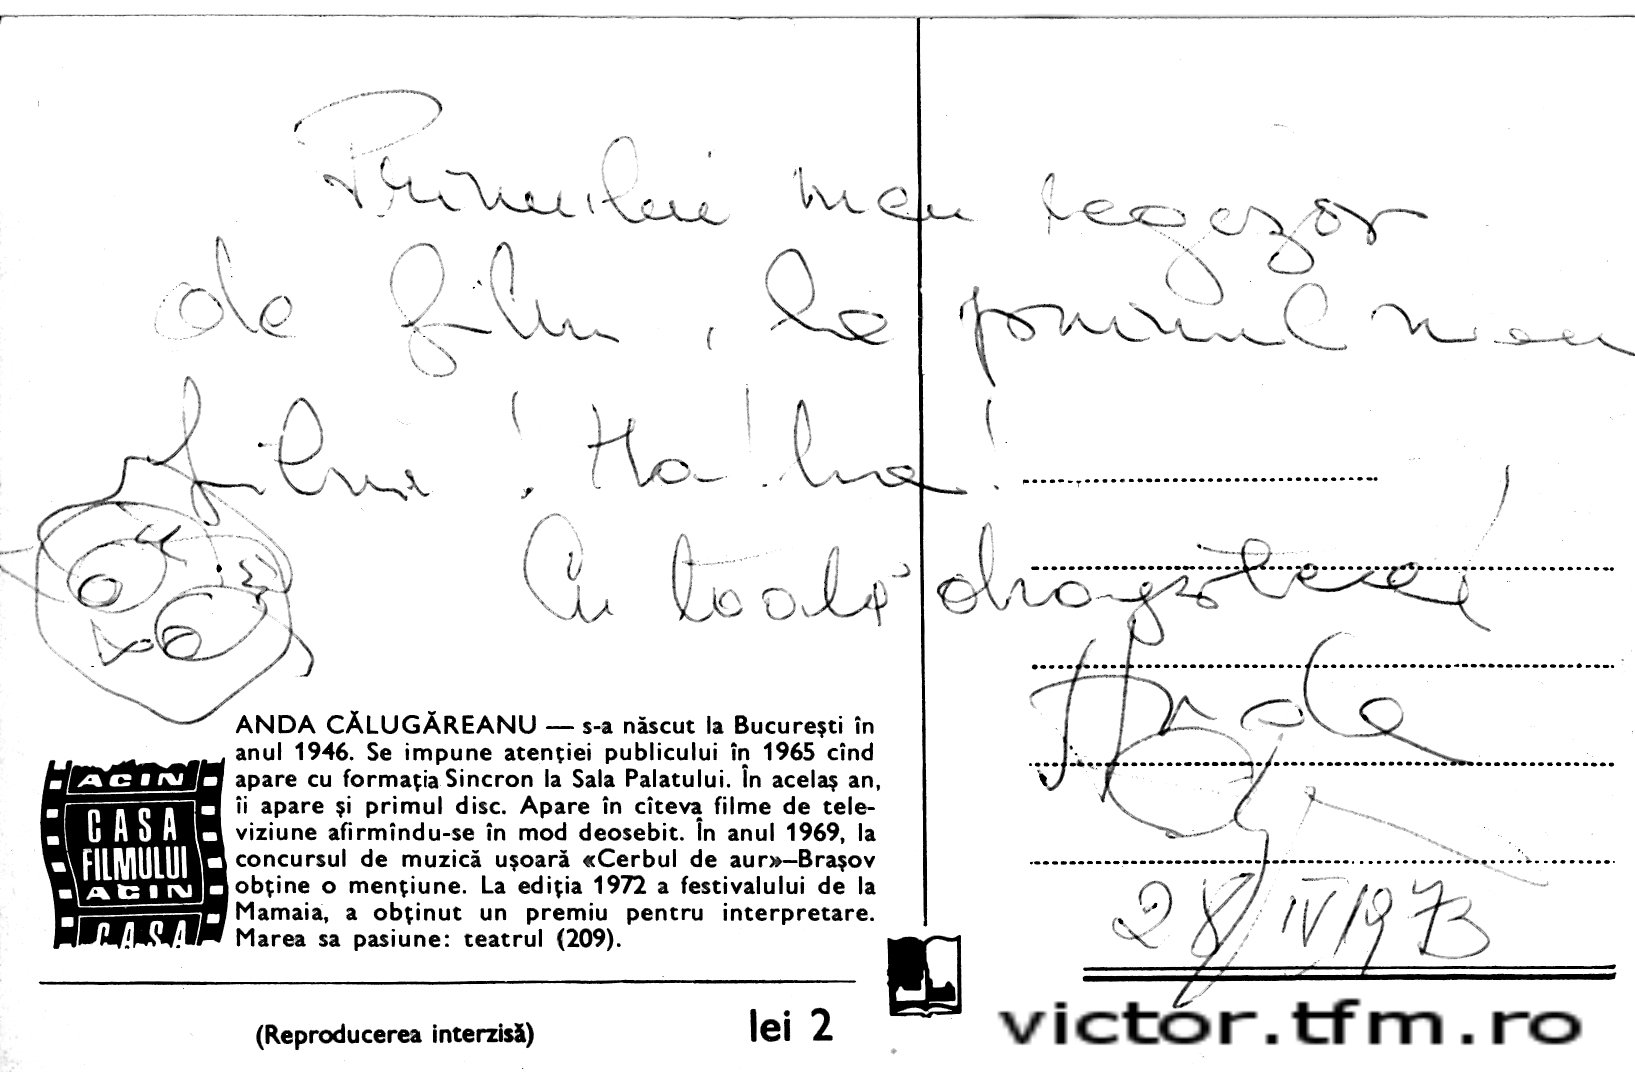 Primului meu regizor
de film, la primul meu
film! Ha! ha!
Cu toată dragostea!
Anda
28 IV 1973
ANDA CĂLUGĂREANU — s-a născut la București în
anul 1946. Se impune atenției publicului în 1965 cînd
apare cu formația Sincron la Sala Palatului. În acelaș an,
îi apare și primul disc. Apare în cîteva filme de tele-
viziune afirmîndu-se în mod deosebit. În anul 1969, la
concursul de muzică ușoară «Cerbul de aur»—Brașov
obține o mențiune. La ediția 1972 a festivalului de la
Mamaia, a obținut un premiu pentru interpretare.
Marea sa pasiune: teatrul (209).
ACIN
CASA
FILMULUI
ACIN
CASA
(Reproducerea interzisă)
lei 2
victor.tfm.ro